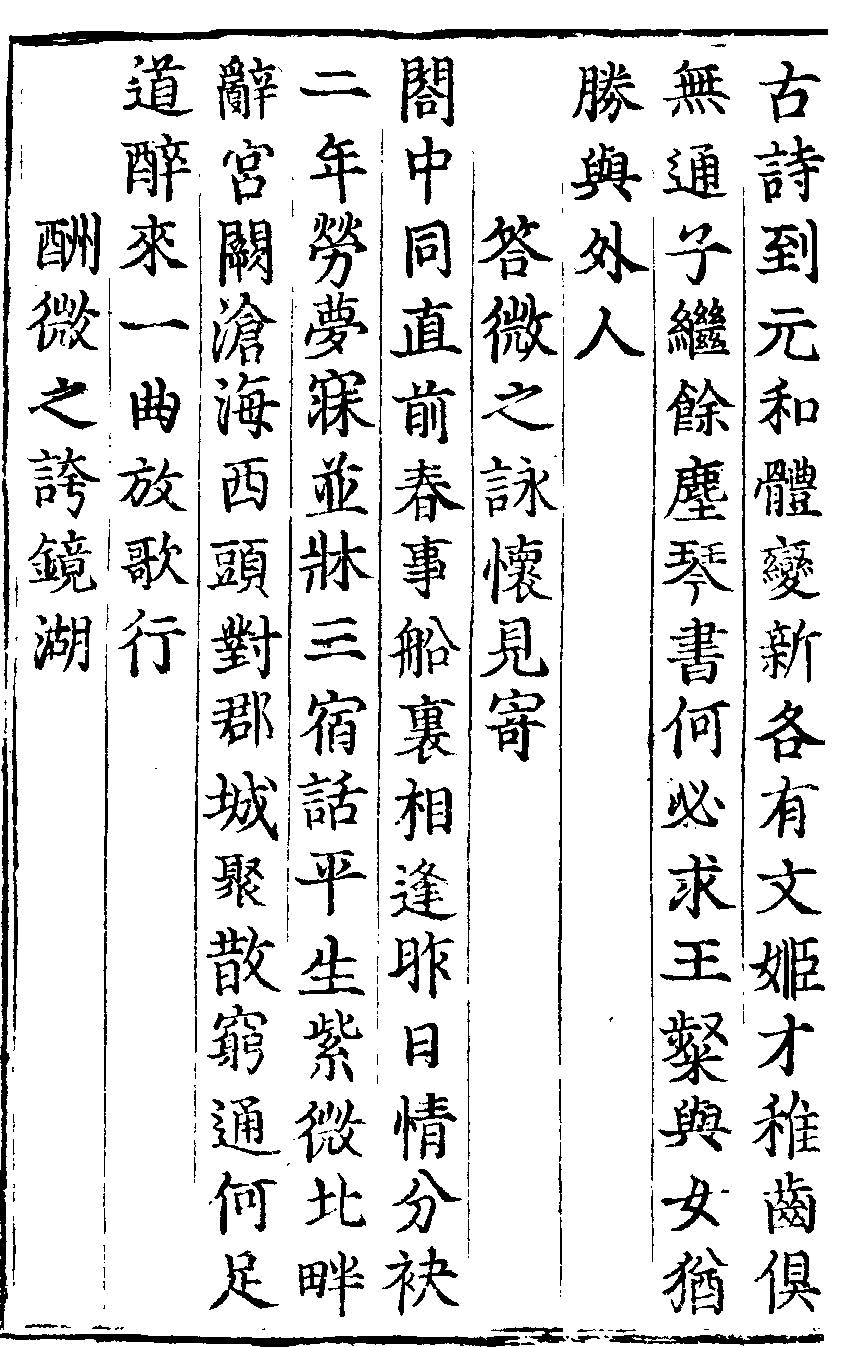 古詩到元和體變新各有文姬才稚齒俱
無通子繼餘塵琴書何必求王粲與女猶
勝與外人
答微之詠懷見寄
閤中同直前春事船裏相逢昨日情分袂
二年勞夢寐並牀三宿話平生紫微北畔
辭宮闕滄海西頭對郡城聚散窮通何足
道醉來一曲放歌行
酬微之誇鏡湖